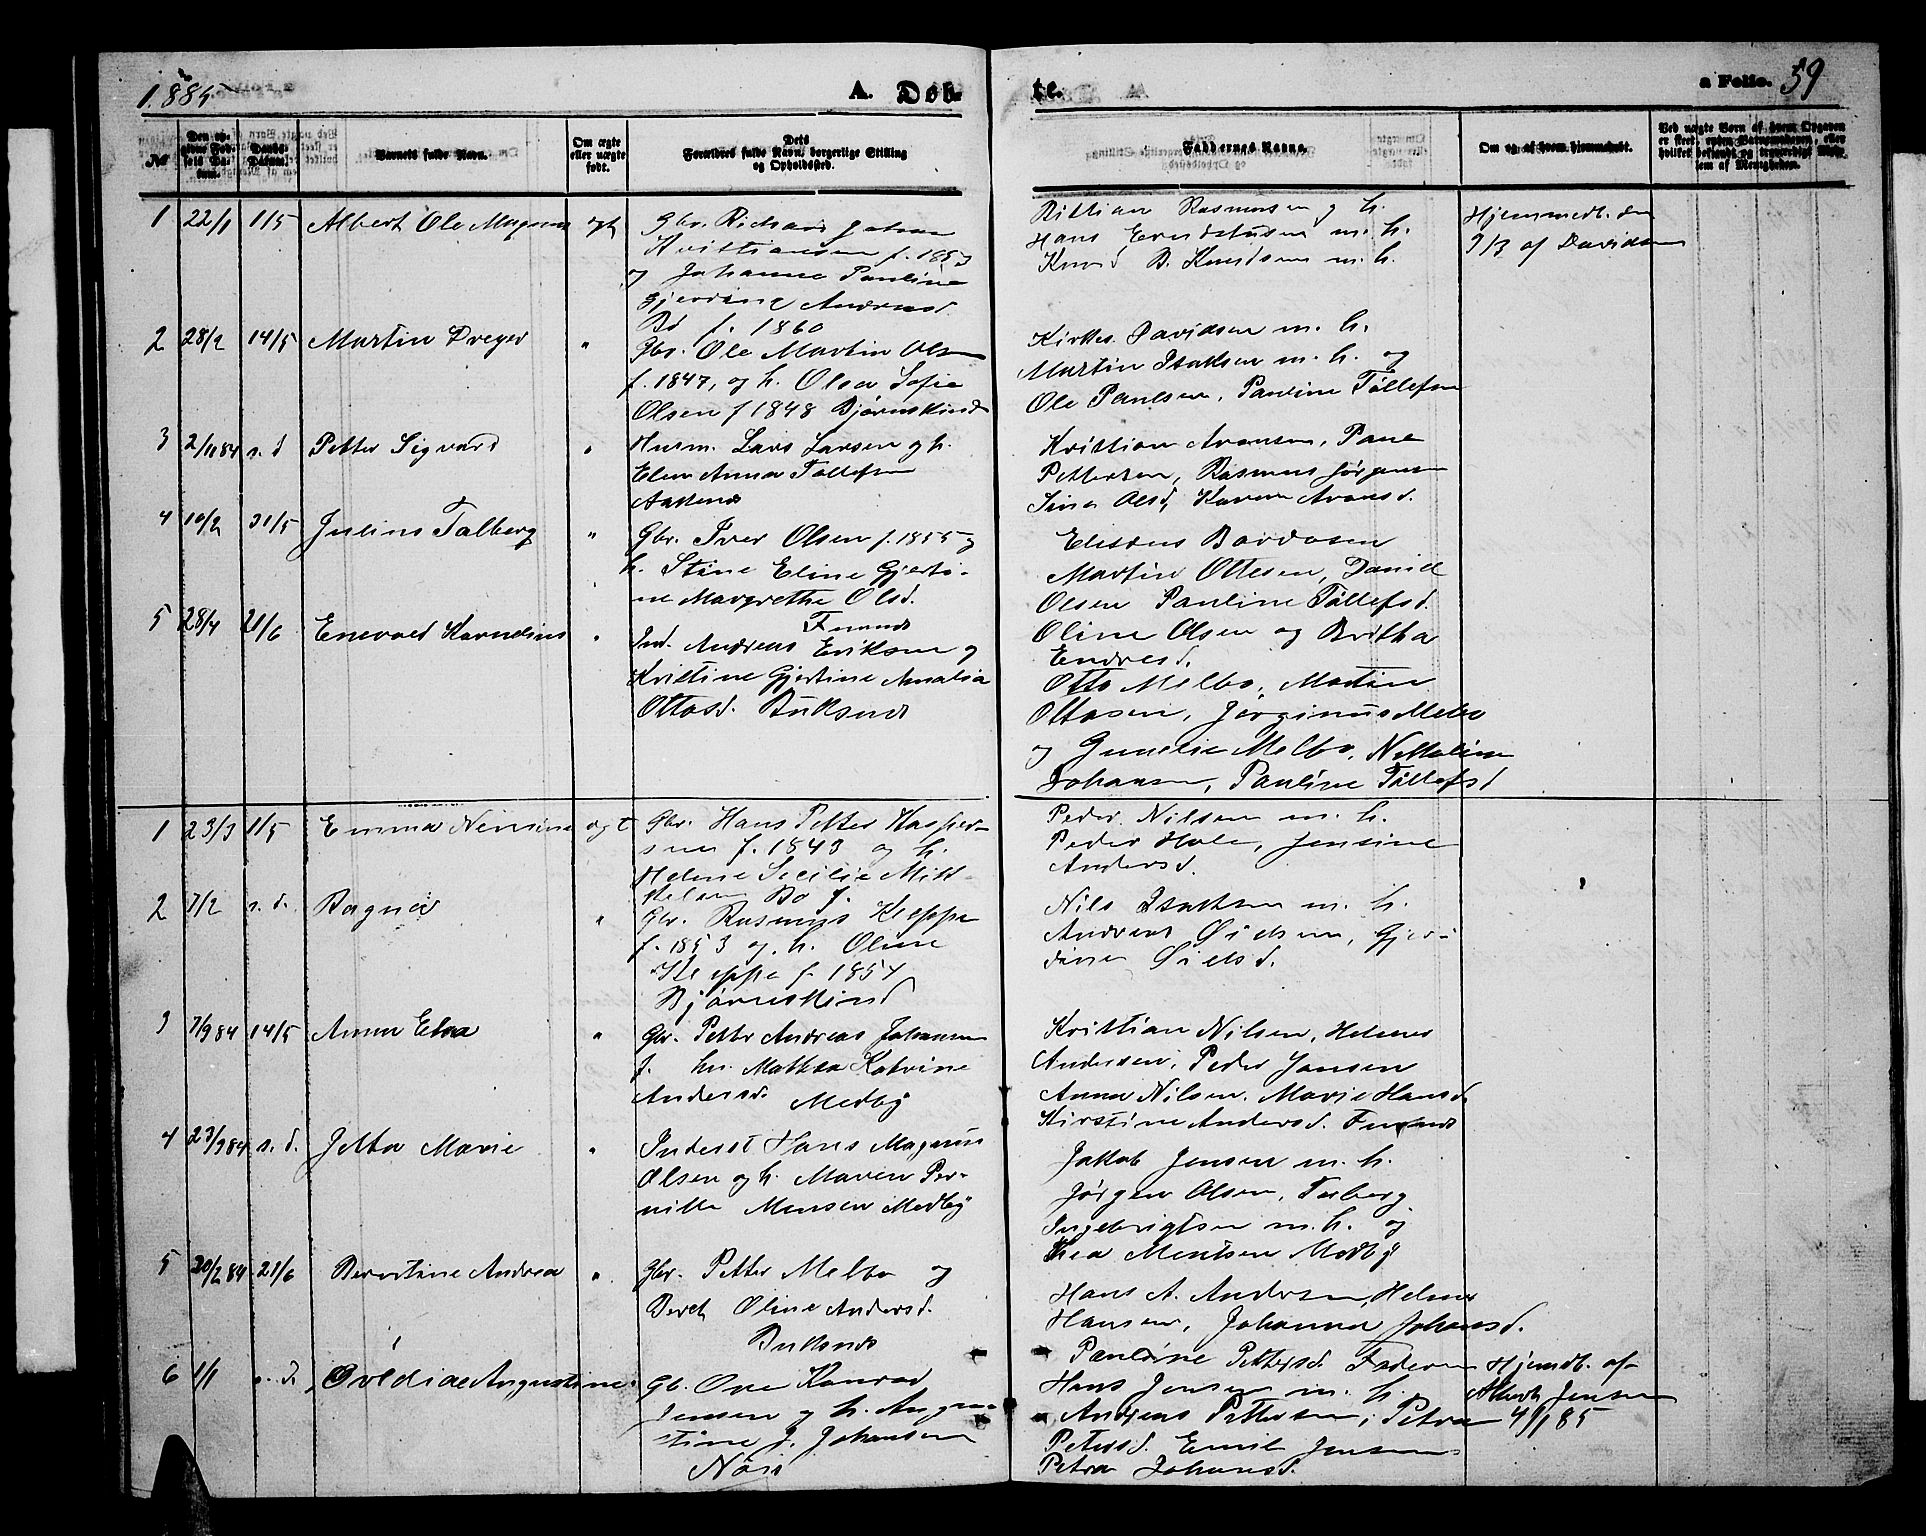 1885
A. Døb-
te.
a Folio. 59
No.
Den op-
givne Fød-
sels Da-
tum.
Daabs-
Datum.
Barnets fulde Navn.
Om ægte
eller uægte
født.
Dets
Forældres fulde Navn, borgerlige Stilling
og Opholdssted.
Faddernes Navne.
Om og af hvem hjemmedøbt.
Ved uægte Børn af hvem Opgaven
er skeet, enten Barnemoderen, eller
hvilket bekjendt og troværdigt Med-
lem af Menigheden.
1 22/1 1/5 Albert Ole Magnus ægt
Gbr. Richard Johan
Kristiansen f. 1853
og Johanne Pauline
Gjerdine Andreasd.
Bø f. 1860
Kristian Rasmussen og h.
Hans Evertsen m. h.
Knud B. Knudsen m. h.
Hjemmedb. den
9/3 af Davidsen
2 28/2 14/5 Martin Dreyer "
Gbr. Ole Martin Olsen
f. 1847, og h. Olsa Sofie
Olsen f 1848 Bjørnskind
Kirkes. Davidsen m. h.
Martin Isaksen m. h. og
Ole Paulsen, Pauline Tøllefsen
3 2/11 84 s. d Petter Sigvard "
Husm. Lars Larsen og h.
Elen Anna Tøllefsen
Kristian Aronsen, Pane
Pettersen, Rasmus Jørgensen
Sina Olsd, Karen Aronsd.
4 10/2 31/5 Julius Talberg "
Gbr. Iver Olsen f. 1855 og
h. Stine Eline Gjerti-
ne Margrethe Olsd.
Elisæus Bardosen
Martin Ottesen, Daniel
Olsen Pauline Tøllefsd.
Oline Olsen og Britha
Endresd.
5 28/4 21/6 Enevold Kornelius "
Ind. Andreas Eriksen og
Kristine Gjertine Amalia
Ottosd. Buksnes
Otto Melbo, Martin
Ottosen, Jørginus Melbo
og Gunelie Melbo, N. Maline
Johansen, Pauline Tøllefsd
1 23/3 1/5 Emma Nensine ægt
Gbr. Hans Petter Kasper-
sen f. 1843 og h.
Helene Secilie Mik-
kelsen Bø f.
Peder Nilsen m. h.
Peder Hole, Jensine
Andersd.
2 7/2 s. d. Ragna "
Gbr. Rasmus Kleppe
f. 1853 og h. Oline
Kleppe f. 1854
Bjørnskind
Nils Isaksen m. h.
Andreas Øielsen, Gjer-
dine Øielsd.
3 7/9 84 14/5 Anna Elna "
Gbr. Petter Andreas Johansen
f. hu. Mathea Katrine
Andersd. Medby
Kristian Nilsen, Helmer
Andersen, Peder Jansen
Anna Nilsen, Marie Hansd.
Kirstine Andersd.
4 23/9 84 s. d. Jetta Marie "
Inderst Hans Magnus
Olsen og h. Maren Per-
nille Monsen Medby
Jakob Jensen m. h.
Jørgen Olsen, Torberg
Ingebrigtsen m. h. og
Thea Mentsen Medby
5 20/2 84 21/6 Berntine Andrea "
Gbr. Petter Melbo og
Beret Oline Andersd.
Buksnes
Hans A. Andersen, Helmer
Hansen, Johanna Johansd.
Pauline Pettersd. Faderen
6 1/1 s. d. Ovldiae Augustine "
Gb. Ove Konrad
Jensen og h. Augu-
stine J. Johansen
Hans Jensen m. h.
Andreas Pettersen, Petra
Petersd. Emil Jensen
Petra Johansd.
Hjemdb. af
Albert Jensen
4/1 85